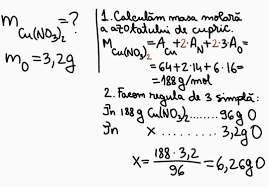 m Cu(NO₃)₂ = ?
m₀ = 3,2g
1. Calculăm masa molară
a azotatului de cupric.
M Cu(NO₃)₂ = A Cu + 2·A N + 2·3·A O =
= 64 + 2·14 + 6·16 =
= 188 g/mol
2. Facem regula de 3 simplă:
În 188 g Cu(NO₃)₂........96g O
În x ............ 3,2g O
x = 188·3,2 / 96 = 6,26g O